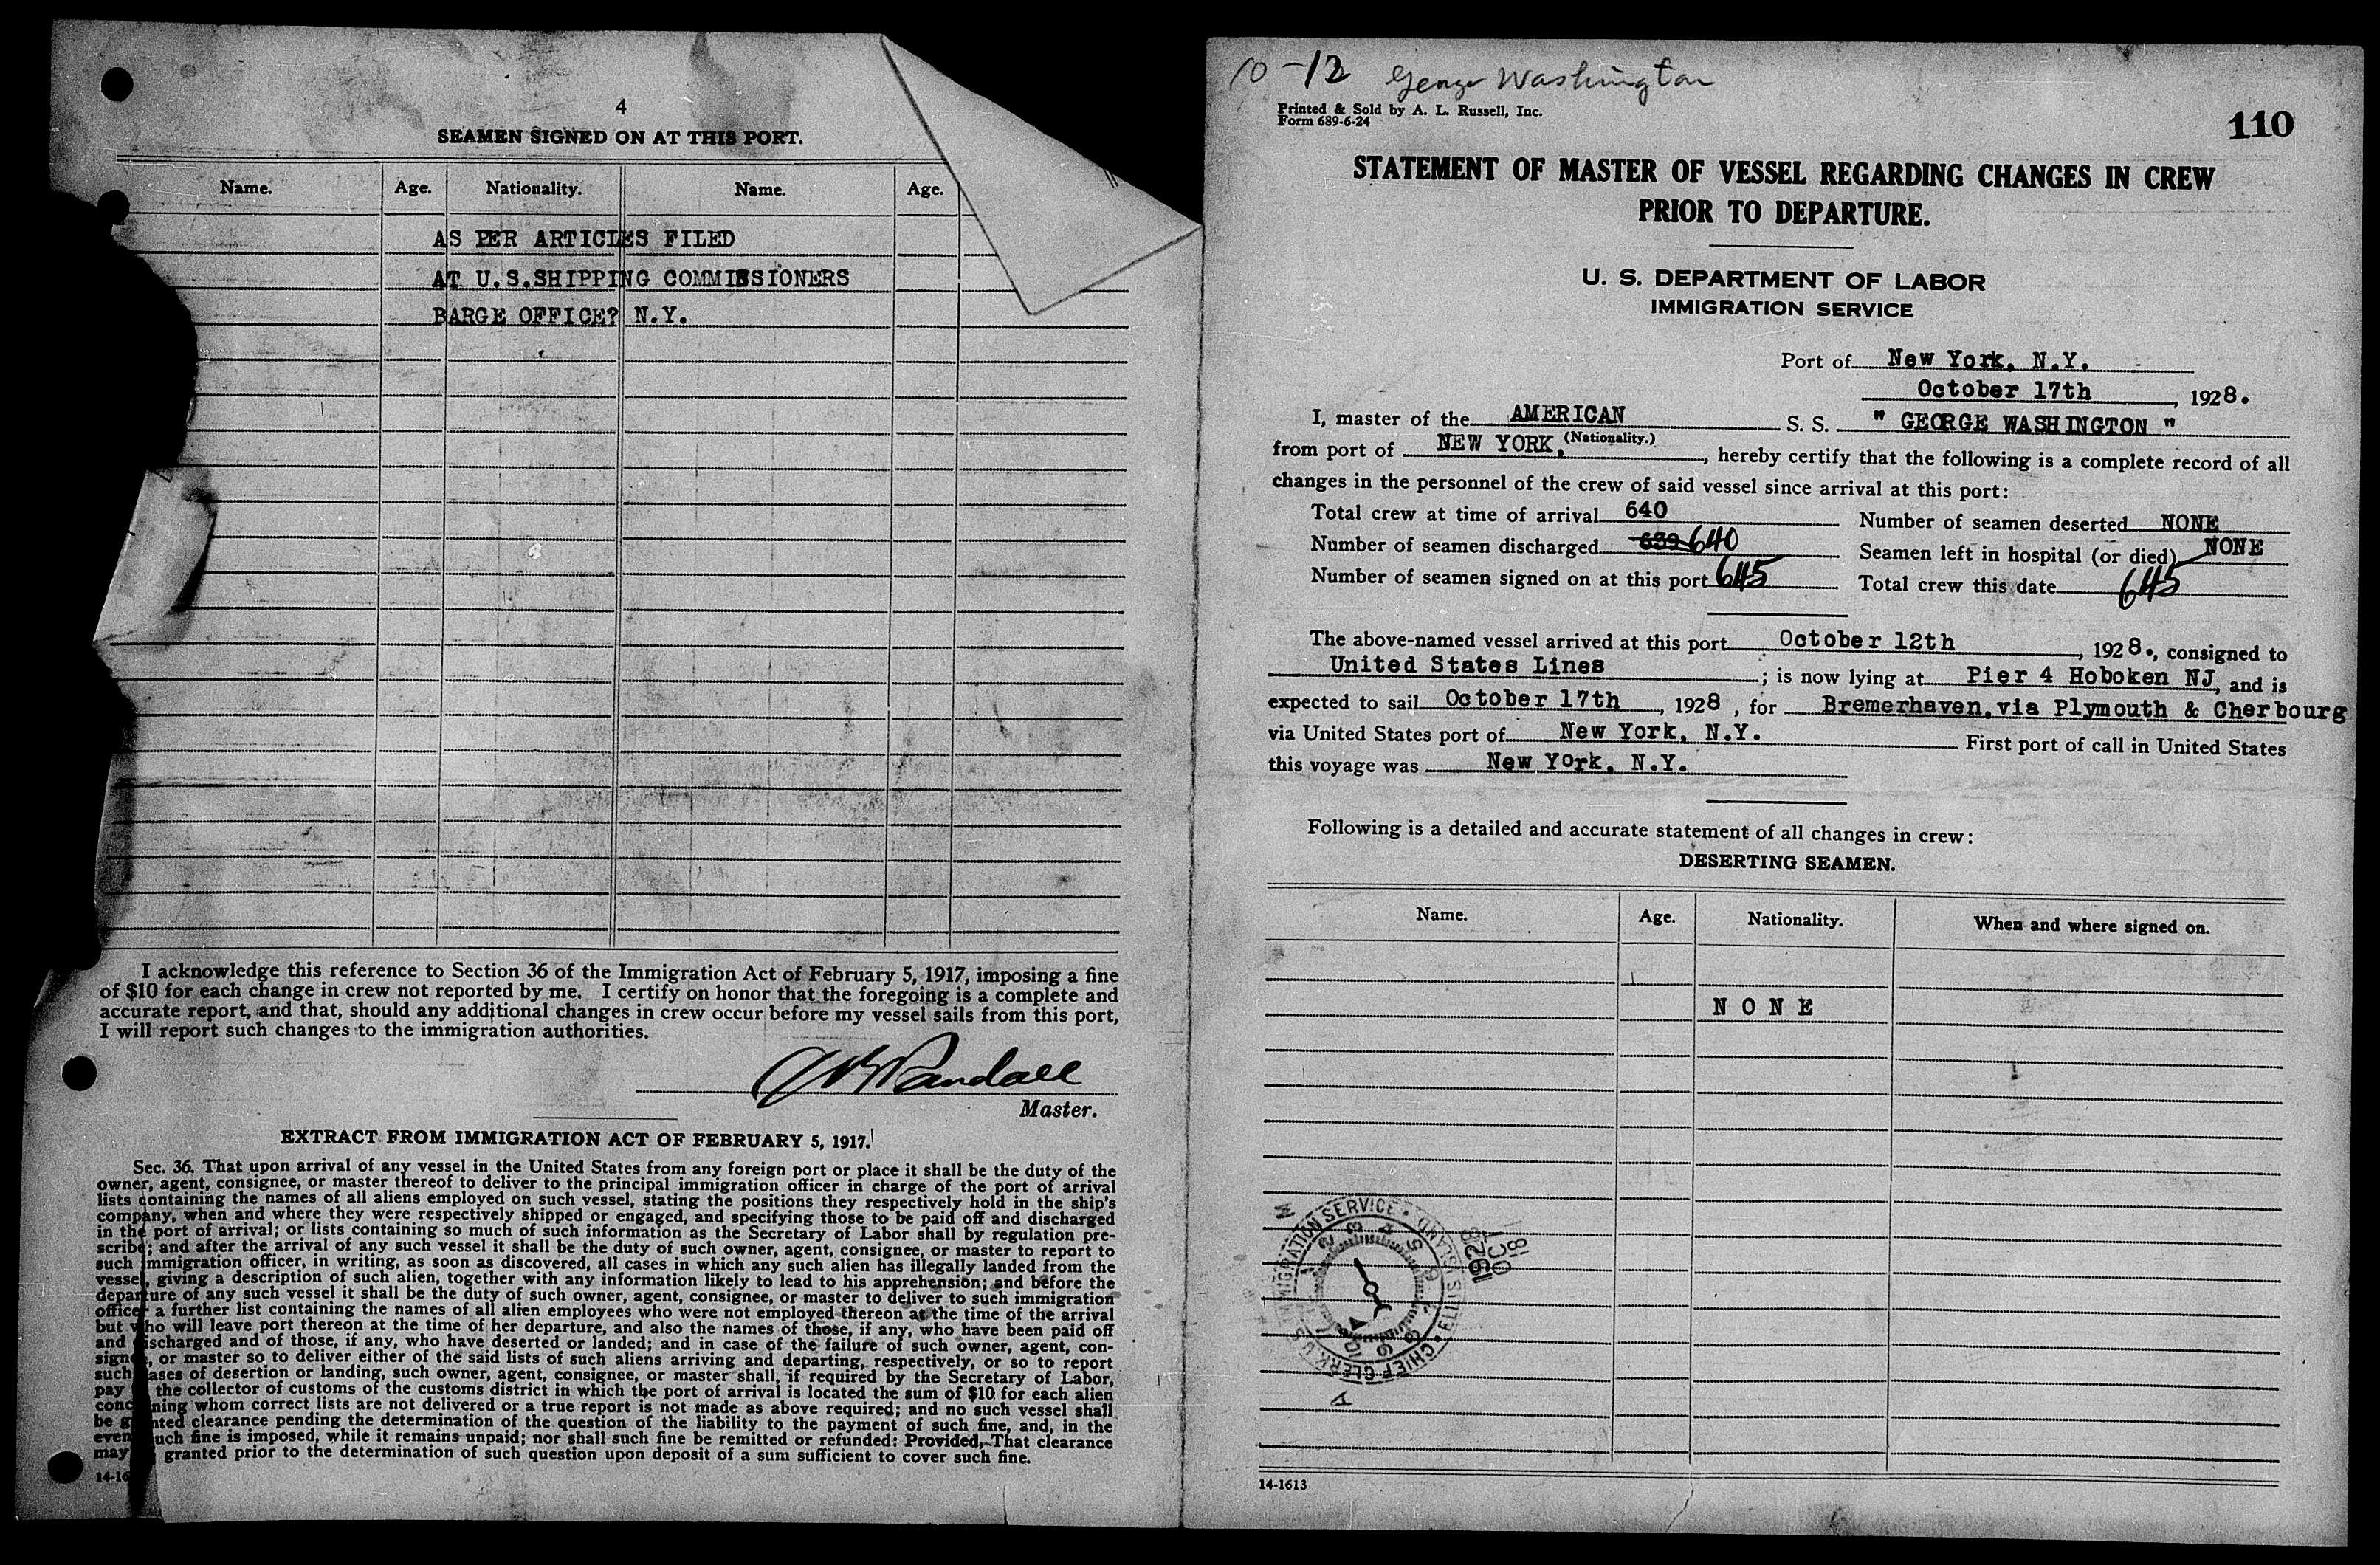 4
SEAMEN SIGNED ON AT THIS PORT.
Name. Age. Nationality. Name. Age.
AS PER ARTICLES FILED
AT U.S.SHIPPING COMMISSIONERS
BARGE OFFICE? N.Y.
I acknowledge this reference to Section 36 of the Immigration Act of February 5, 1917, imposing a fine
of $10 for each change in crew not reported by me. I certify on honor that the foregoing is a complete and
accurate report, and that, should any additional changes in crew occur before my vessel sails from this port,
I will report such changes to the immigration authorities.
Randall
Master.
EXTRACT FROM IMMIGRATION ACT OF FEBRUARY 5, 1917.
Sec. 36. That upon arrival of any vessel in the United States from any foreign port or place it shall be the duty of the
owner, agent, consignee, or master thereof to deliver to the principal immigration officer in charge of the port of arrival
lists containing the names of all aliens employed on such vessel, stating the positions they respectively hold in the ship's
company, when and where they were respectively shipped or engaged, and specifying those to be paid off and discharged
in the port of arrival; or lists containing so much of such information as the Secretary of Labor shall by regulation pre-
scribe; and after the arrival of any such vessel it shall be the duty of such owner, agent, consignee, or master to report to
such immigration officer, in writing, as soon as discovered, all cases in which any such alien has illegally landed from the
vessel, giving a description of such alien, together with any information likely to lead to his apprehension; and before the
departure of any such vessel it shall be the duty of such owner, agent, consignee, or master to deliver to such immigration
officer a further list containing the names of all alien employees who were not employed thereon at the time of the arrival
but who will leave port thereon at the time of her departure, and also the names of those, if any, who have been paid off
and discharged and of those, if any, who have deserted or landed; and in case of the failure of such owner, agent, con-
signee, or master so to deliver either of the said lists of such aliens arriving and departing, respectively, or so to report
such cases of desertion or landing, such owner, agent, consignee, or master shall, if required by the Secretary of Labor,
pay the collector of customs of the customs district in which the port of arrival is located the sum of $10 for each alien
concerning whom correct lists are not delivered or a true report is not made as above required; and no such vessel shall
be granted clearance pending the determination of the question of the liability to the payment of such fine, and, in the
even such fine is imposed, while it remains unpaid; nor shall such fine be remitted or refunded: Provided, That clearance
may granted prior to the determination of such question upon deposit of a sum sufficient to cover such fine.
10-12 George Washington
Printed & Sold by A. L. Russell, Inc.
Form 689-6-24
110
STATEMENT OF MASTER OF VESSEL REGARDING CHANGES IN CREW
PRIOR TO DEPARTURE.
U. S. DEPARTMENT OF LABOR
IMMIGRATION SERVICE
Port of New York, N.Y.
October 17th, 1928.
I, master of the AMERICAN S. S. " GEORGE WASHINGTON "
(Nationality.)
from port of NEW YORK, , hereby certify that the following is a complete record of all
changes in the personnel of the crew of said vessel since arrival at this port:
Total crew at time of arrival 640 Number of seamen deserted NONE
Number of seamen discharged 639 640 Seamen left in hospital (or died) NONE
Number of seamen signed on at this port 645 Total crew this date 645
The above-named vessel arrived at this port October 12th, 1928., consigned to
United States Lines ; is now lying at Pier 4 Hoboken NJ, and is
expected to sail October 17th, 1928, for Bremerhaven.via Plymouth & Cherbourg
via United States port of New York, N.Y. First port of call in United States
this voyage was New York, N.Y.
Following is a detailed and accurate statement of all changes in crew:
DESERTING SEAMEN.
Name. Age. Nationality. When and where signed on.
N O N E
CHIEF CLERK U.S. IMMIGRATION SERVICE • ELLIS ISLAND •
1928 OCT 18
14-1613